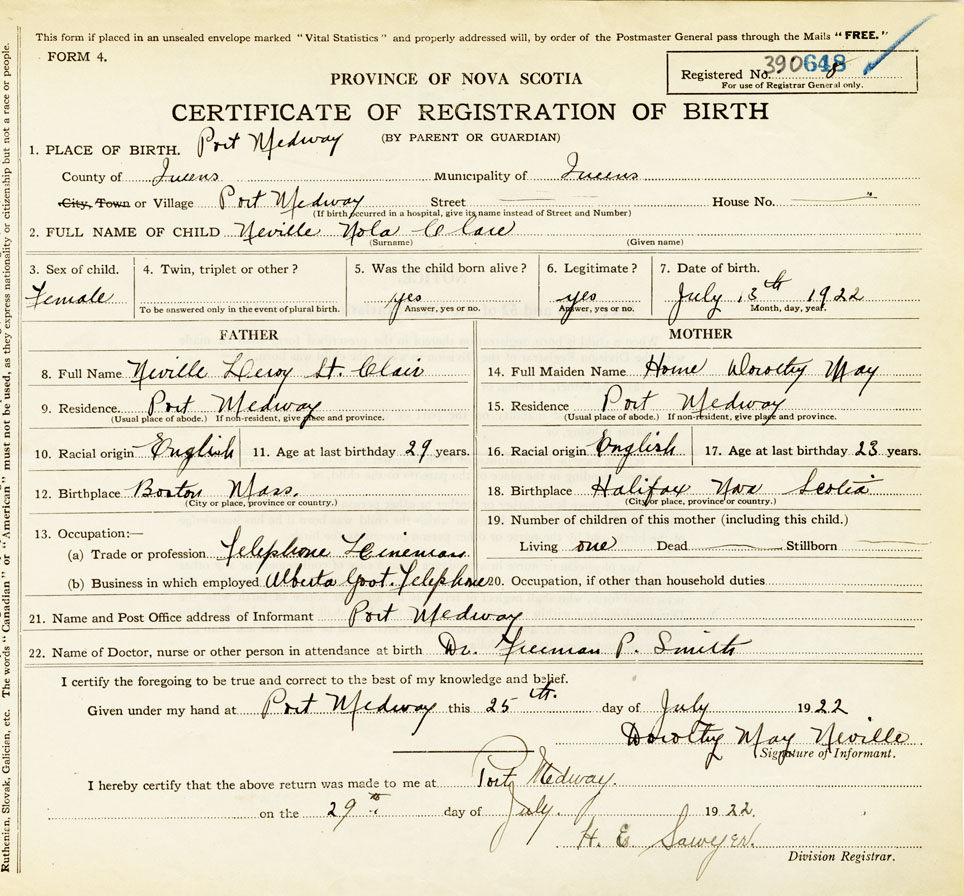 This form if placed in an unsealed envelope marked "Vital Statistics" and properly addressed will, by order of the Postmaster General pass through the Mails "FREE."
FORM 4.
Registered No. 390648
For use of Registrar General only.
PROVINCE OF NOVA SCOTIA
CERTIFICATE OF REGISTRATION OF BIRTH
(BY PARENT OR GUARDIAN)
1. PLACE OF BIRTH. Port Medway
County of Queens Municipality of Queens
City, Town or Village Port Medway Street House No.
(If birth occurred in a hospital, give its name instead of Street and Number)
2. FULL NAME OF CHILD Neville Nola Clare
(Surname) (Given name)
3. Sex of child. 4. Twin, triplet or other? 5. Was the child born alive? 6. Legitimate? 7. Date of birth.
Female yes yes July 13th 1922
To be answered only in the event of plural birth. Answer, yes or no. Answer, yes or no. Month, day, year.
FATHER MOTHER
8. Full Name Neville Leroy St. Clair 14. Full Maiden Name Horne Dorothy May
9. Residence. Port Medway 15. Residence Port Medway
(Usual place of abode.) If non-resident, give place and province. (Usual place of abode.) If non-resident, give place and province.
10. Racial origin English 11. Age at last birthday 29 years. 16. Racial origin English 17. Age at last birthday 23 years.
12. Birthplace Boston Mass. 18. Birthplace Halifax Nova Scotia
(City or place, province or country.) (City or place, province or country.)
13. Occupation:— 19. Number of children of this mother (including this child.)
(a) Trade or profession Telephone Lineman Living one Dead Stillborn
(b) Business in which employed Alberta Govt. Telephone 20. Occupation, if other than household duties
21. Name and Post Office address of Informant Port Medway
22. Name of Doctor, nurse or other person in attendance at birth Dr. Freeman P. Smith
I certify the foregoing to be true and correct to the best of my knowledge and belief.
Given under my hand at Port Medway this 25th. day of July 1922
Dorothy May Neville
Signature of Informant.
I hereby certify that the above return was made to me at Port Medway.
on the 29th day of July. 1922.
H. E Sawyer.
Division Registrar.
Ruthenien, Slovak, Galician, etc. The words "Canadian" or "American" must not be used, as they express nationality or citizenship but not a race or people.